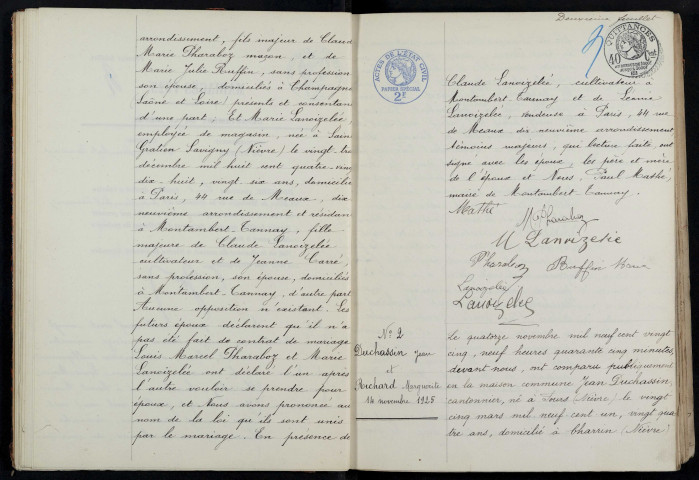 arrondissement, fils majeur de Claude
Marie Pharaboz maçon, et de
Marie Julie Ruffin, sans profession
son épouse, domiciliés à Champagn
Saône et Loire) présents et consentan
d'une part; Et Marie Lanoizelée
employée de magasin, née à Sain
Gratien Savigny (Nièvre) le vingt
décembre mil huit cent quatre-vin
dix-huit, vingt six ans, domicilié
à Paris, 44 rue de Meaux, dix
neuvième arrondissement et résidan
à Montambert-Tannay, fille
majeure de Claude Lanoizelée
cultivateur et de Jeanne Carré,
sans profession, son épouse, domiciliés
à Montambert-Tannay, d'autre part
Aucune opposition n'existant. Les
futurs époux déclarent qu'il n'a
pas été fait de contrat de mariage
Louis Marcel Pharaboz et Marie
Lanoizelée ont déclaré l'un après
l'autre vouloir se prendre pour
époux, et Nous avons prononcé au
nom de la loi qu'ils sont unis
par le mariage. En présence de
ACTES DE L'ÉTAT CIVIL
PAPIER SPÉCIAL
2F
feuillet
QUITTANCES
40
Claude Lanoizelée, cultivateur à
Montambert-Tannay et de Léonie
Lanoizelée, vendeuse à Paris, 44 rue
de Meaux dix neuvième arrondissement
témoins majeurs, qui lecture faite, ont
signé avec les époux, les père et mère
de l'époux et Nous, Paul Mathé,
maire de Montambert-Tannay.
Mathé
M Lanoizelée
Pharaboz Ruffin
Lanoizelée
Lanoizelée
N° 2
Duchassin Jean
et
Bichard Marguerite
14 novembre 1925
Le quatorze novembre mil neuf cent vingt
cinq, neuf heures quarante cinq minutes,
devant nous, ont comparu publiquement
en la maison commune Jean Duchassin,
cantonnier, né à Tours (Nièvre) le vingt
cinq mars mil neuf cent un, vingt qua
tre ans, domicilié à Charrin (Nièvre)